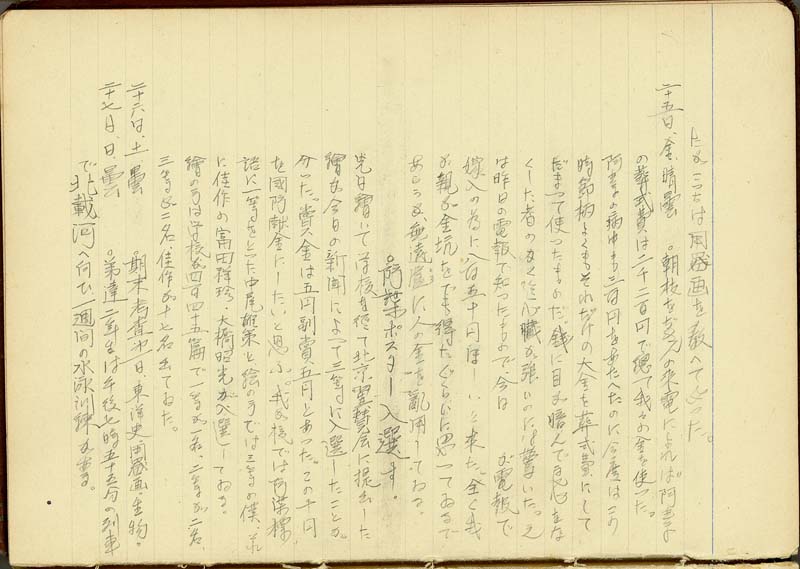 たがこっちは用器画を教へてくった。
二十五日、金、晴曇 朝枝をぢさんの来電によれば阿
の葬式費は二千二百円で總て我々の金を使った。
阿 の病中も三百円をあたへたのに今度はこの
時節柄よくもそれだけの大金を葬式費にして
だまって使ったものだ。銭に目が暗んで良心をな
くした者の 心臓が強いのには驚いた。之
は昨日の電報で知ったもので、今日 が電報で
嫁入の為に八百五十円ほしいと来た。全く我
が親が金坑をでも得たぐらいに思ってゐるで
あらうが、無遠慮に人の金を乱用してゐる。
。防諜ポスター入選す。
先日書いて学校を経て北京翼賛会に提出した
繪が今日の新聞によって三等に入選したことが
分った。賞金は五円副賞五円とあった。この十円
を國防献金にしたいと思ふ。我が校では防諜標
語に一等をとった中尾 策と絵の方では三等の僕、それ
に佳作の富田祥珍・大橋昭光が入選してゐる。
繪の方は学校が四百四十五篇で一等が一名、二等が二名、
三等が二名、佳作が十七名出てゐた。
二十六日、土、曇 。期末考査中一日、東洋史・用器画・生物。
二十七日、日、曇 。弟達二年生は午後七時五十五分の列車
で北載河へ向ひ一週間の水泳訓練がある。